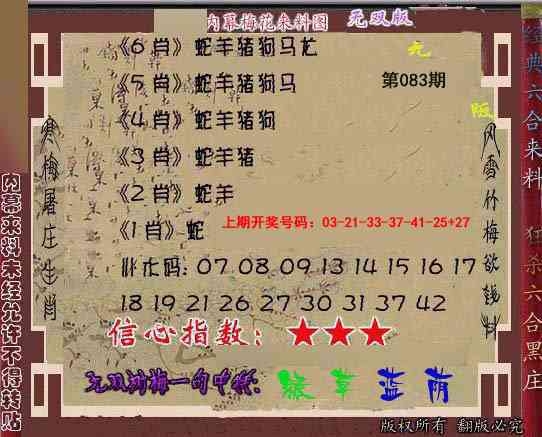 内幕梅花来料图 无双版
《6 肖》蛇羊猪狗马龙
无
《5 肖》蛇羊猪狗马
第083期
版
《4 肖》蛇羊猪狗
《3 肖》蛇羊猪
《2 肖》蛇羊
《1 肖》蛇
上期开奖号码：03-21-33-37-41-25+27
07 08 09 13 14 15 16 17
18 19 21 26 27 30 31 37 42
信心指数：★★★
无双 梅一句中特：
草 蓝 荫
版权所有 翻版必究
寒梅屠庄生肖
内幕来料未经允许不得转贴
风雪竹梅欲钱料
经典六合来料
狂杀六合黑庄